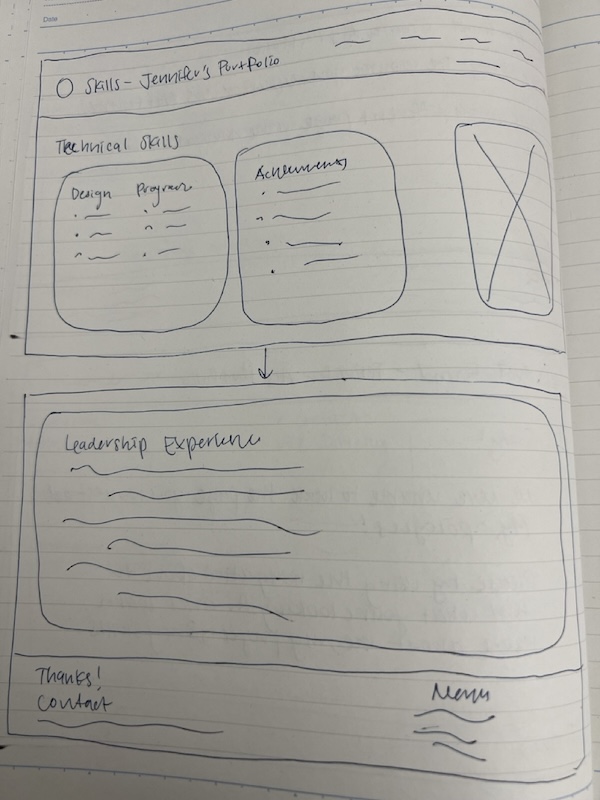 Date
Skills - Jennifer's Portfolio
Technical Skills
Design Program
Achievements
Leadership Experience
Thanks!
Contact
Menu